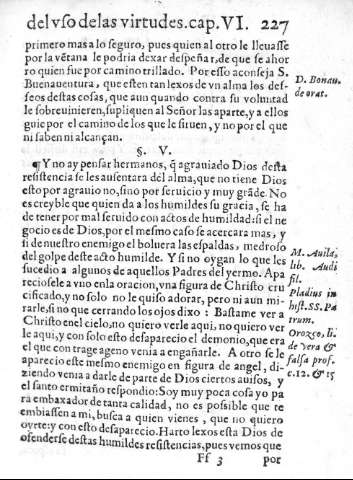 del vso delas virtudes. cap. VI. 227
primero mas a lo seguro, pues quien al otro le lleuasse
por la vẽtana le podria dexar despeñar, de que se ahor
ro quien fue por camino trillado. Por esso aconseja S.
Buenauentura, que esten tan lexos de vn alma los des-
seos destas cosas, que aun quando contra su voluntad
le sobreuinieren, supliquen al Señor las aparte, y a ellos
guie por el camino de los que le siruen, y no por el que
ni saben ni alcançan.
D. Bonau.
de orat.
§. V.
¶ Y no ay pensar hermanos, q̃ agrauiado Dios desta
resistencia se les ausentara del alma, que no tiene Dios
esto por agrauio no, sino por seruicio y muy grãde. No
es creyble que quien da a los humildes su gracia, se ha
de tener por mal seruido con actos de humildad: si el ne
gocio es de Dios, por el mesmo caso se acercara mas, y
si de nuestro enemigo el boluera las espaldas, medroso
del golpe deste acto humilde. Y si no oygan lo que les
sucedio a algunos de aquellos Padres del yermo. Apa
reciosele a vno en la oracion, vna figura de Christo cru
cificado, y no solo no le quiso adorar, pero ni aun mi-
rarle, si no que cerrando los ojos dixo: Bastame ver a
Christo en el cielo, no quiero verle aqui, no quiero ver
le aqui, y con solo esto desaparecio el demonio, que era
el que con trage ageno venia a engañarle. A otro se le
aparecio este mesmo enemigo en figura de angel, di-
ziendo venia a darle de parte de Dios ciertos auisos, y
el santo ermitaño respondio: Soy muy poca cosa yo pa
ra embaxador de tanta calidad, no es possible que te
embiassen a mi, busca a quien vienes, que no quiero
oyrte: y con esto desaparecio. Harto lexos esta Dios de
ofenderse destas humildes resistencias, pues vemos que
M. Auila,
lib. Audi
fil.
Pladius in
hist. SS. Pa
trum.
Orozco, li.
de vera &
falsa prof.
c. 12. & 15
Ff 3 por